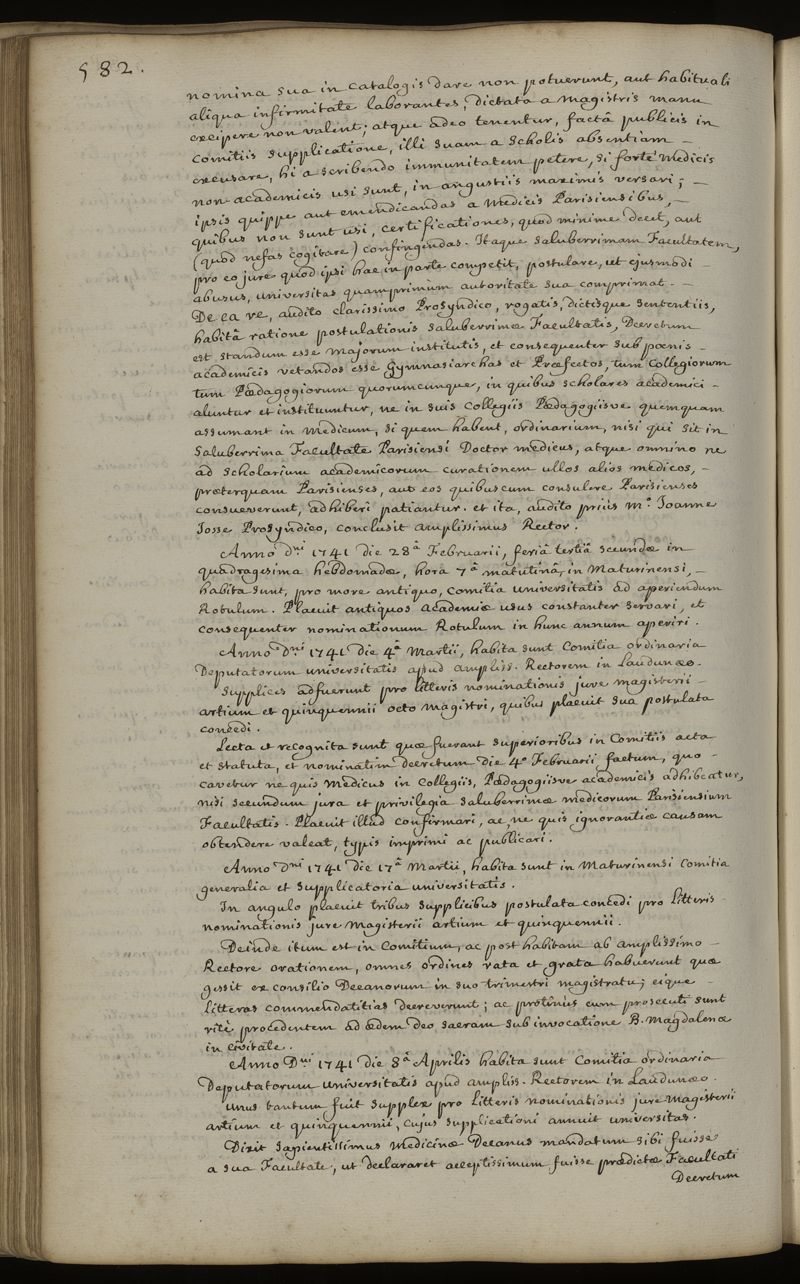 582.
nomina sua in catalogis dare non potuerunt, aut habituali
aliqua infirmitate laborantes, dictata a magistris manu
excipere non valent; atque adeo tenentur, factâ publicis in
Comitiis supplicatione, illi suam a scholis absentiam –
excusare, hi a scribendo immunitatem petere, si forte medicis
non academicis usi sunt, in angustiis maximis versari; –
ipsis quippe aut emendicandas a medicis Parisiensibus, –
quibus non sunt usi, certificationes, quod minime decet, aut
(quod nefas cogitare) confingendas. Itaque saluberrimam Facultatem,
pro eo jure quod ipsi hac in parte competit, postulare, ut ejusmodi
abusus, universitas quamprimum autoritate sua comprimat. –
De ea re, audito clarissimo Prosyndico, rogatis, dictisque sententiis,
habitâ ratione postulationis saluberrimæ Facultatis, Decretum
est standum esse majorum institutis, et consequenter sub pœnis –
academicis vetandos esse Gymnasiarchas et Præfectos, tum Collegiorum
tum Pædagogiorum quorumcunque, in quibus scholares academici –
aluntur et instituuntur, ne in suis Collegiis Pædagogiisve quemquam
assumant in medicum, si quem habent, ordinarium, nisi qui sit in
Saluberrima Facultate Parisiensi Doctor medicus, atque omnino ne
ad scholarium academicorum curationem ullos alios medicos, –
præterquam Parisienses, aut eos quibuscum consulere Parisienses
consueverunt, adhiberi patiantur. et ita, audito priùs m.º Joanne
Josse Prosyndico, conclusit amplissimus Rector.
Anno dni 1741 die 28â Februarii, feriâ tertiâ secundæ in
quadragesima hebdomadæ, hora 7â matutinâ, in Maturinensi, –
habita sunt, pro more antiquo, comitia universitatis ad aperiendum
Rotulum. Placuit antiquos academiæ usus constanter servari, et
consequenter nominationum Rotulum in hunc annum aperiri.
Anno Dni 1741 die 4â Martii, habita sunt Comitia ordinaria
Deputatorum universitatis apud ampliss. Rectorem in Laudunæo.
Supplices adfuerunt pro litteris nominationis jure magisterii –
artium et quinquennii octo magistri, quibus placuit sua postulata
concedi.
Lecta et recognita sunt quæ fuerant superioribus in Comitiis acta
et statuta, et nominatim decretum die 4â Februarii factum, quo –
cavetur ne quis medicus in Collegiis, Pædagogiisve academicis adhibeatur,
nisi secundum jura et privilegia saluberrimæ medicorum Parisiensium
Facultatis. Placuit illud confirmari, ac, ne quis ignorantiæ causam
obtendere valeat, typis imprimi ac publicari.
Anno Dni 1741 die 17â Martii, habita sunt in Maturinensi Comitia
generalia et supplicatoria universitatis.
In angulo placuit tribus supplicibus postulata concedi pro litteris
nominationis jure magisterii artium et quinquennii.
Deinde itum est in Comitium, ac post habitam ab amplissimo –
Rectore orationem, omnes ordines rata et grata habuerunt quæ
gessit ex consilio Decanorum in suo trimestri magistratu; eique –
litteras commendatitias decreverunt; ac protinus eum prosecuti sunt
rite procedentem ad ædem deo sacram sub invocatione B. Magdalenæ
in civitate.
Anno Dni 1741 die 8â Aprilis habita sunt Comitia ordinaria
Deputatorum universitatis apud ampliss. Rectorem in Laudunæo.
Unus tantum fuit supplex pro litteris nominationis jure magisterii
artium et quinquennii, cujus supplicationi annuit universitas.
Dixit sapientissimus medicinæ Decanus mandatum sibi fuisse
a sua Facultate, ut declararet acceptissimum fuisse prædictæ Facultati
Decretum